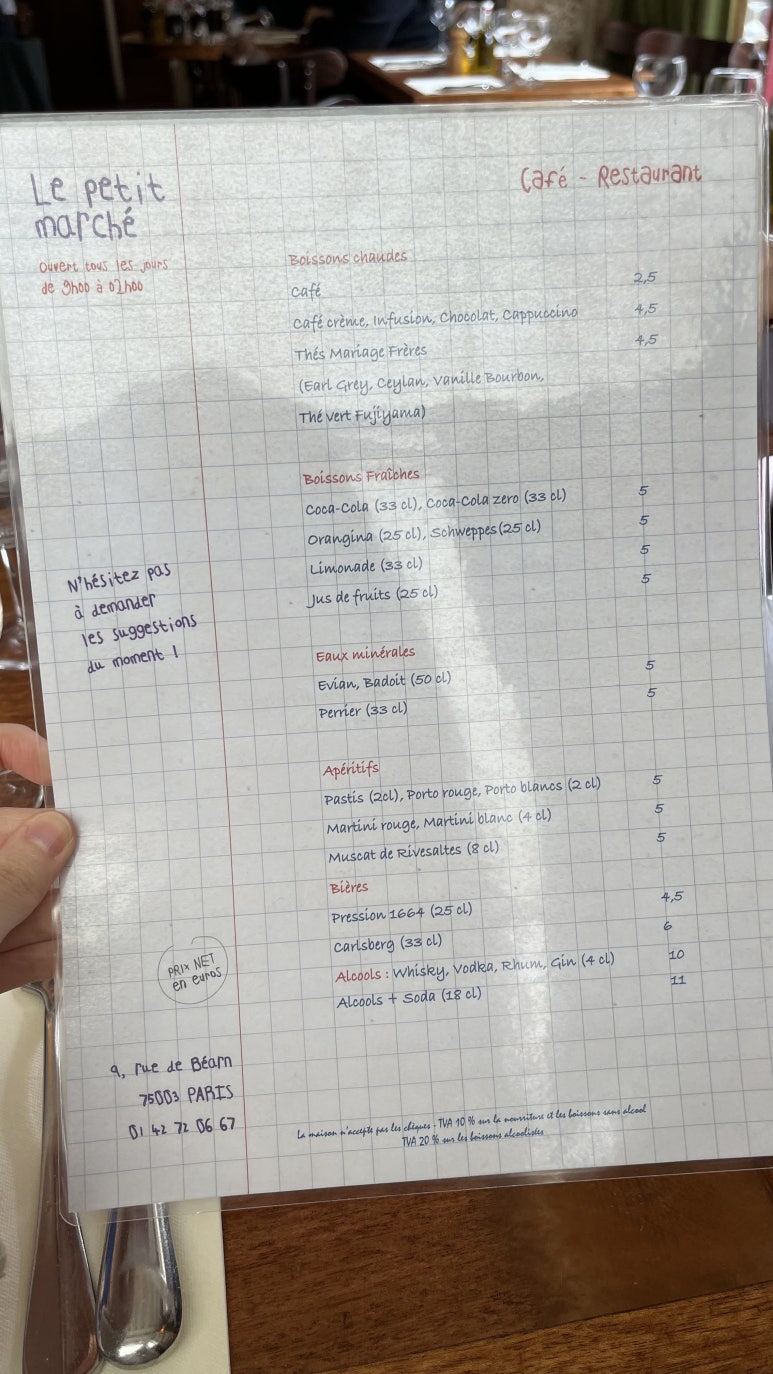 Le petit
marché
Café - Restaurant
ouvert tous les jours
de 9h00 à 02h00
Boissons chaudes
Café 2,5
Café crème, Infusion, Chocolat, Cappuccino 4,5
Thés Mariage Frères 4,5
(Earl Grey, Ceylan, Vanille Bourbon,
Thé vert Fujiyama)
Boissons Fraîches
Coca-Cola (33 cl), Coca-Cola zero (33 cl) 5
Orangina (25 cl), Schweppes (25 cl) 5
Limonade (33 cl) 5
Jus de fruits (25 cl) 5
N'hésitez pas
à demander
les suggestions
du moment !
Eaux minérales
Evian, Badoit (50 cl) 5
Perrier (33 cl) 5
Apéritifs
Pastis (2cl), Porto rouge, Porto blancs (2 cl) 5
Martini rouge, Martini blanc (4 cl) 5
Muscat de Rivesaltes (8 cl) 5
Bières
Pression 1664 (25 cl) 4,5
Carlsberg (33 cl) 6
Alcools : Whisky, Vodka, Rhum, Gin (4 cl) 10
Alcools + Soda (18 cl) 11
PRIX NET
en euros
9, rue de Béarn
75003 PARIS
01 42 72 06 67
La maison n'accepte pas les chèques - TVA 10 % sur la nourriture et les boissons sans alcool
TVA 20 % sur les boissons alcoolisées